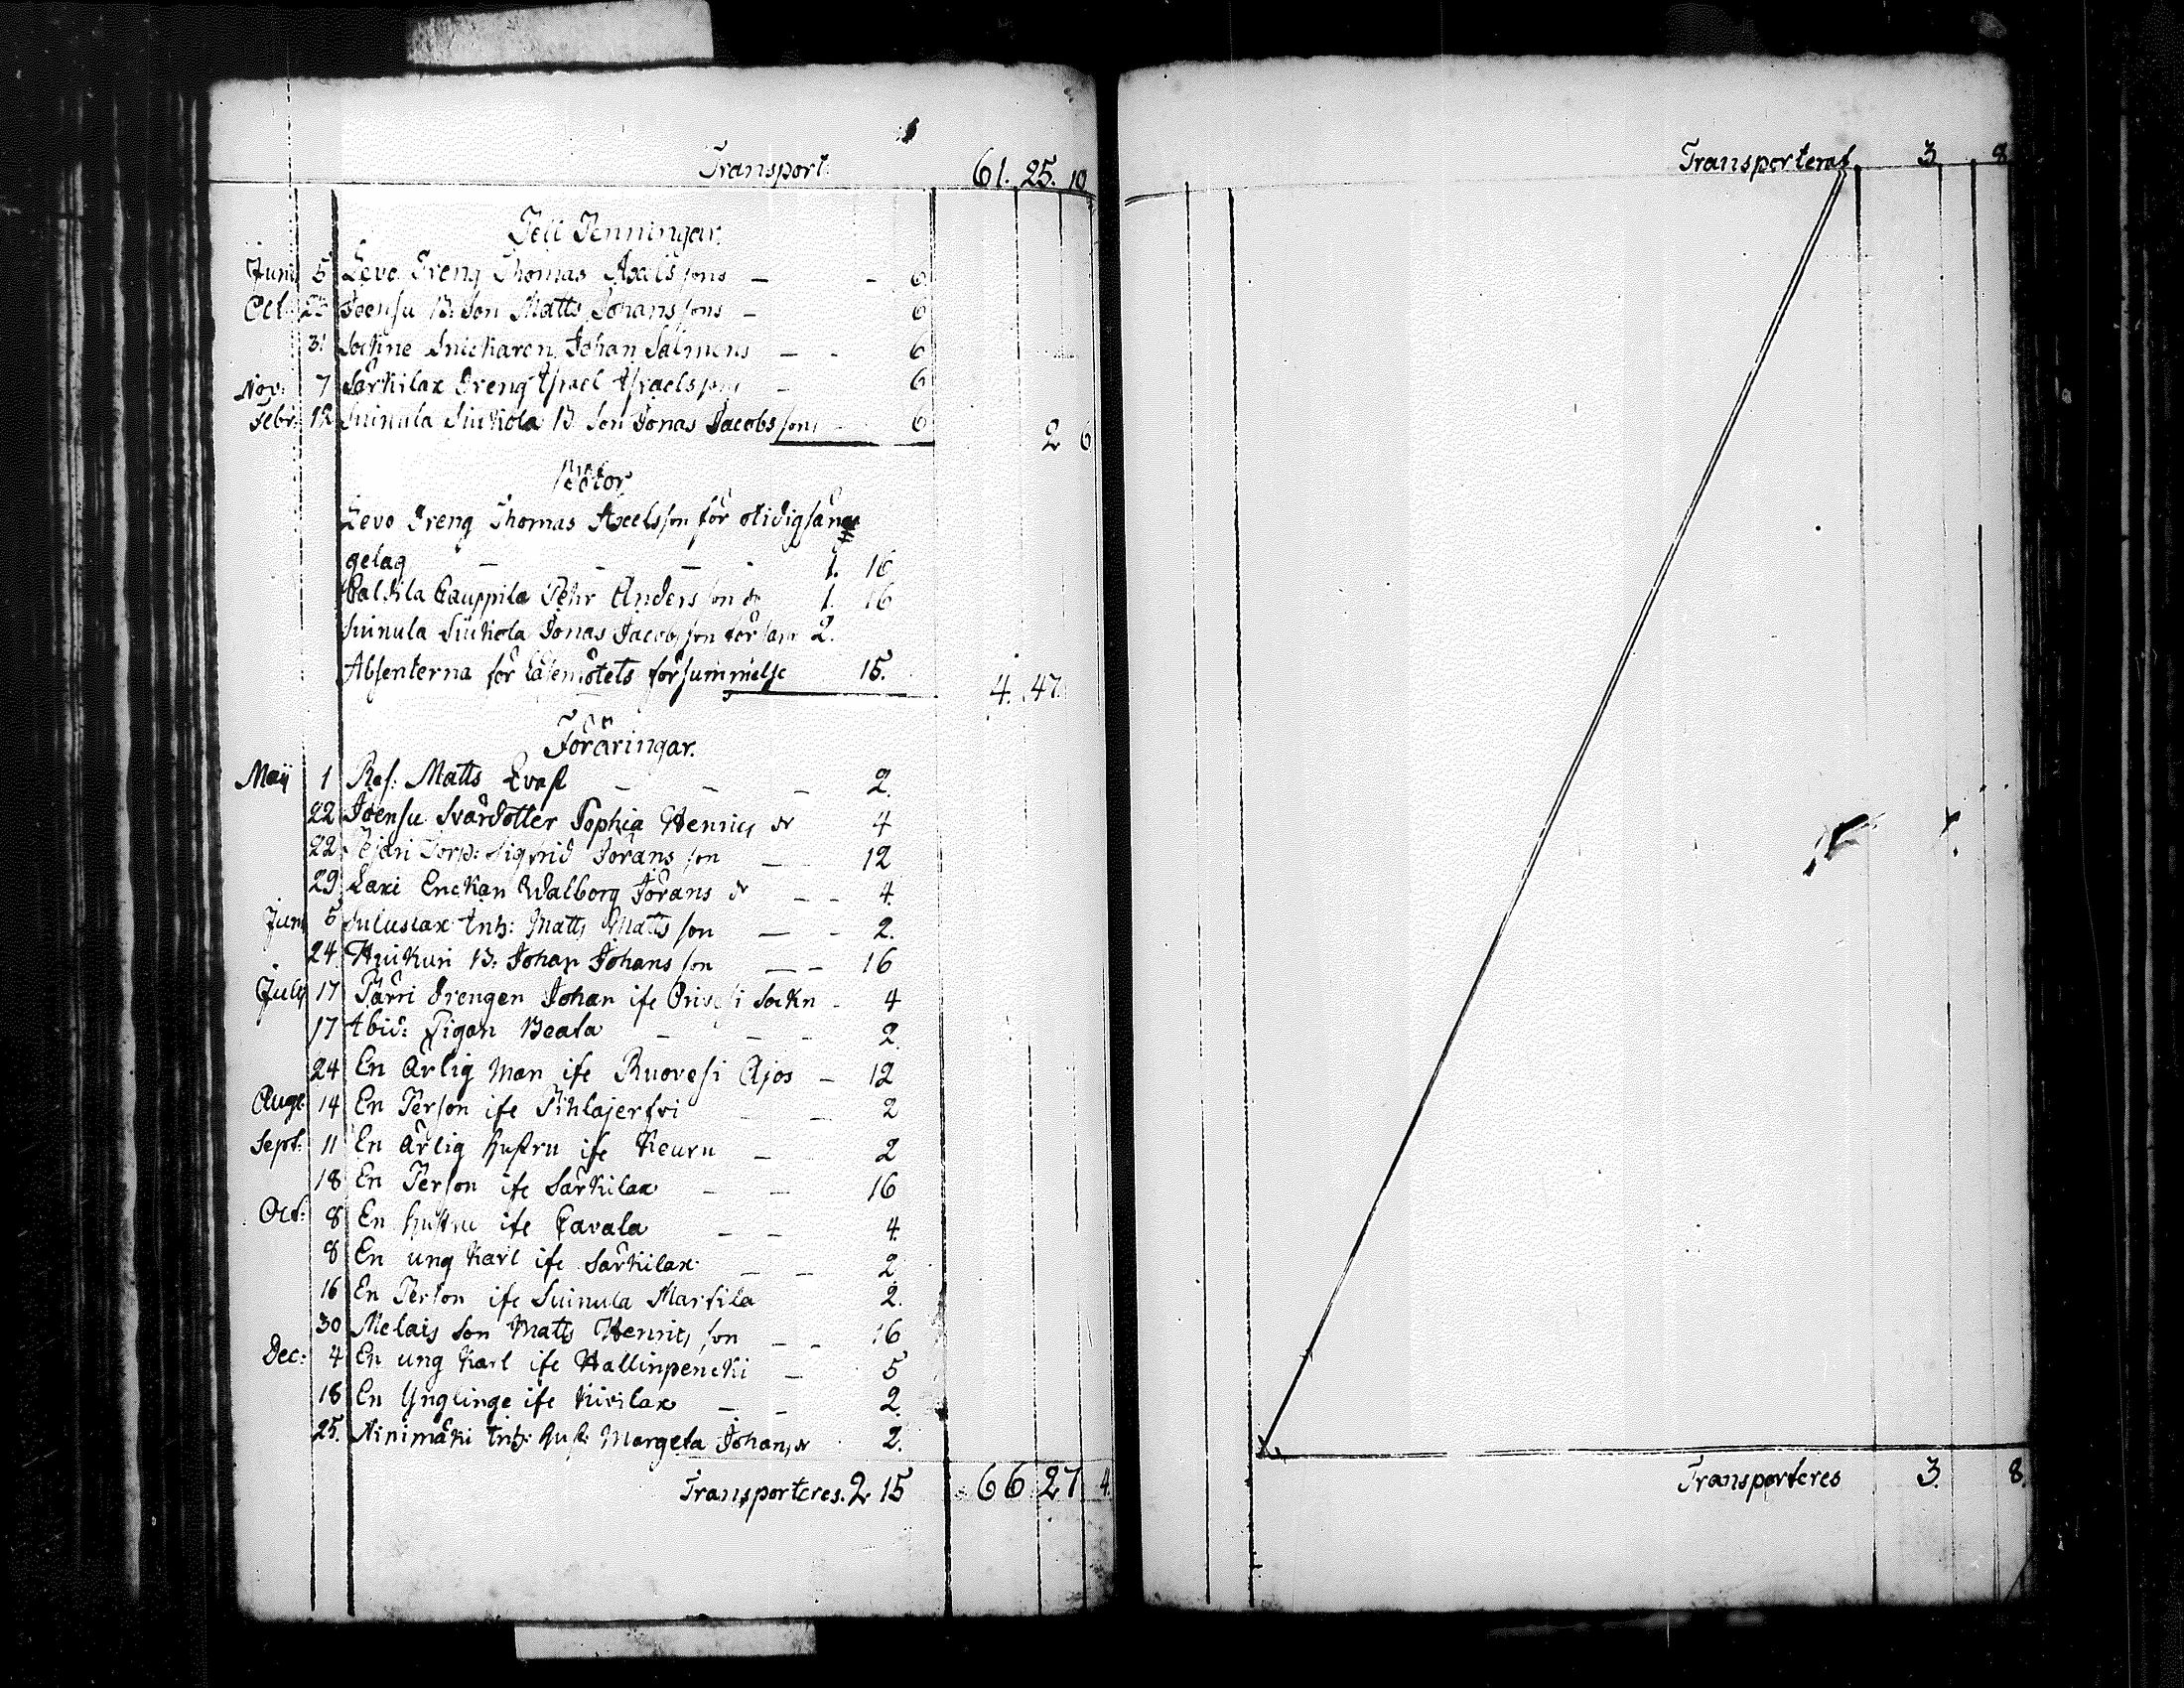 Transport. 61. 25. 10
Tell Penningar.
Juni 5 Levo Dreng Thomas Axelssons - - 6
Oct. 23 Joensu B: Son Matts Johanssons - 6
31 Sockne Snickaren Johan Salmens - - 6
Nov: 7 Särkilax Dreng Israel Israelssons - 6
Febr: 12 Suinula Siukola B: Son Jonas Jacobssons - 6 2 6
Böter
Levo Dreng Thomas Axelsson för otidig sänge
gelag - - - - 1. 16
Pehr Andersson do 1. 16
Suinula Siukola Jonas Jacobsson för 2.
Absenterna för Läsemötets försummelse 15. 4. 47.
Föräringar.
Maij 1 Ref: Matts Qvast - - - 2.
22 Joensu Svärdotter Sophia Henrics dr 4
22 Torp: Sigfrid Jöransson - 12
29 Laxi Enckan Walborg Jörans dr - - 4.
Juni 5 Inh: Matts Mattsson - - 2.
24. B: Johan Johansson - - 16
July 17 Pärri Drengen Johan ife Orivesi Sockn - 4
17 Ibid: Pigan Beata - - - 2.
24 En ärlig Man ife Ruovesi Ajos - 12
Aug: 14 En Person ife Pihlajerfvi - 2
Sept: 11 En ärlig hustru ife Keuru - 2
18 En Person ife Särkilax - - 16
Oct: 8 En hustru ife Pavala - - 4.
8 En ung Karl ife Särkilax - - 2.
16 En Person ife Suinula Martila 2.
30 Melais Son Matts Henricsson - - 16
Dec: 4 En ung Karl ife Hallinpencki - 5
18 En Ynglinge ife Kivilax - - 2.
25. Niñimäki Inh: hust: Margeta Johans dr 2.
Transporteres. 2 15 66 27 4.
Transporterat 3. 8
Transporteres 3. 8.